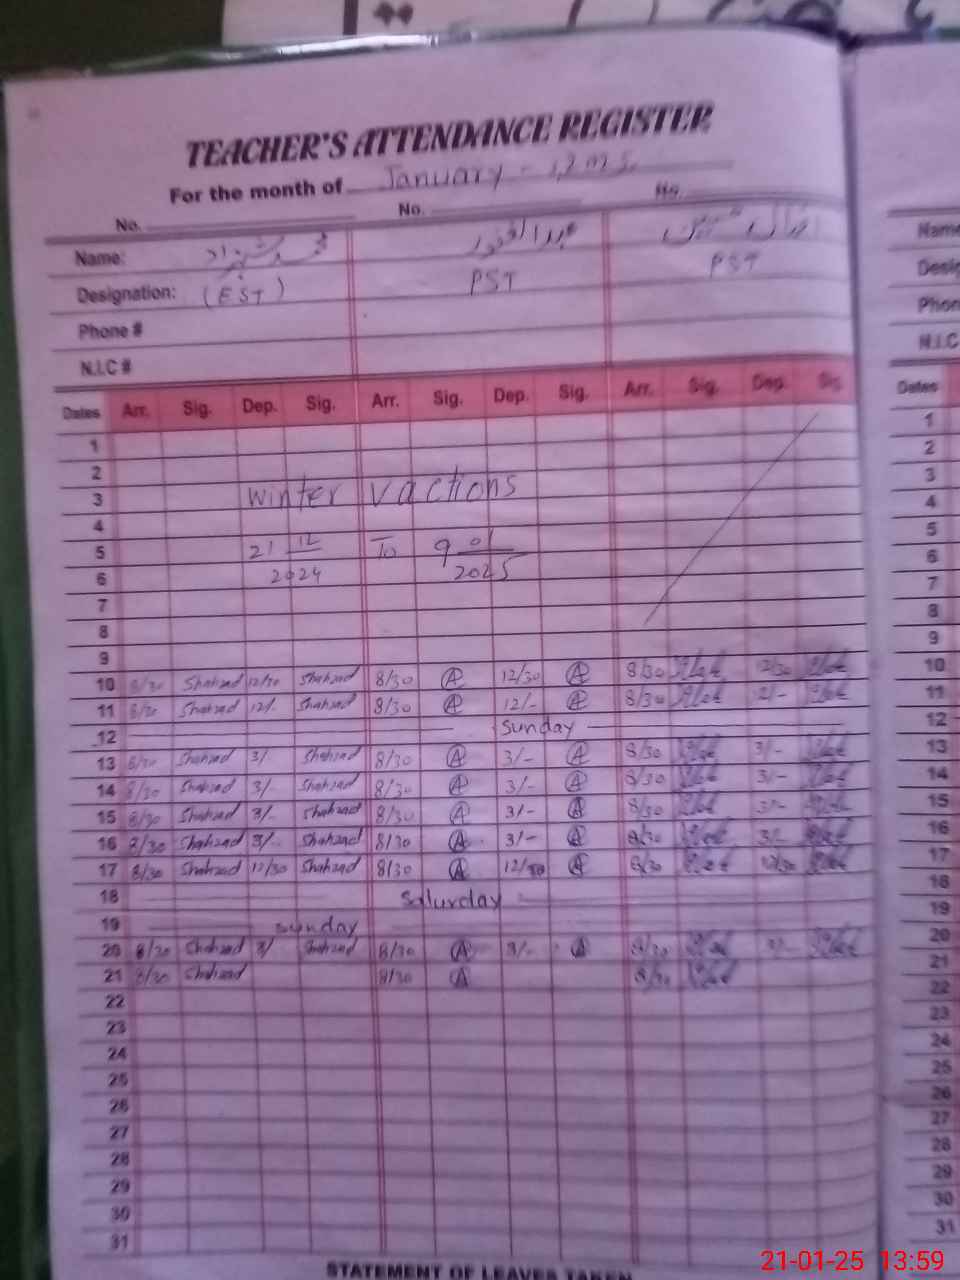 TEACHER'S ATTENDANCE REGISTER
For the month of January - 1,2025.
No. No. No.
Name: محمد شہزاد عبدالغفور
Designation: (EST) PST PST
Phone #
N.I.C #
Dates Arr. Sig. Dep. Sig. Arr. Sig. Dep. Sig. Arr. Sig. Dep. Sig.
1
2
3 Winter vactions
4
5 21 12 To 9 01
6 2024 2025
7
8
9
10 8/30 Shahzad 12/30 Shahzad 8/30 A 12/30 A 8/30 12/30
11 8/30 Shahzad 12/- Shahzad 8/30 A 12/- A 8/30 12/-
12 Sunday
13 8/30 Shahzad 3/ Shahzad 8/30 A 3/- A 8/30 3/-
14 8/30 Shahzad 3/ Shahzad 8/30 A 3/- A 8/30 3/-
15 8/30 Shahzad 3/- Shahzad 8/30 A 3/- A 8/30 3/-
16 8/30 Shahzad 3/- Shahzad 8/30 A 3/- A 8/30 3/-
17 8/30 Shahzad 12/30 Shahzad 8/30 A 12/30 A 8/30 12/30
18 Saturday
19 Sunday
20 8/30 Shahzad 3/ Shahzad 8/30 A 3/- A 8/30 3/-
21 8/30 Shahzad 8/30 A 8/30
22
23
24
25
26
27
28
29
30
31
STATEMENT OF LEAVES TAKEN
Name
Desig
Phon
N.I.C
Dates
1
2
3
4
5
6
7
8
9
10
11
12
13
14
15
16
17
18
19
20
21
22
23
24
25
26
27
28
29
30
31
21-01-25 13:59